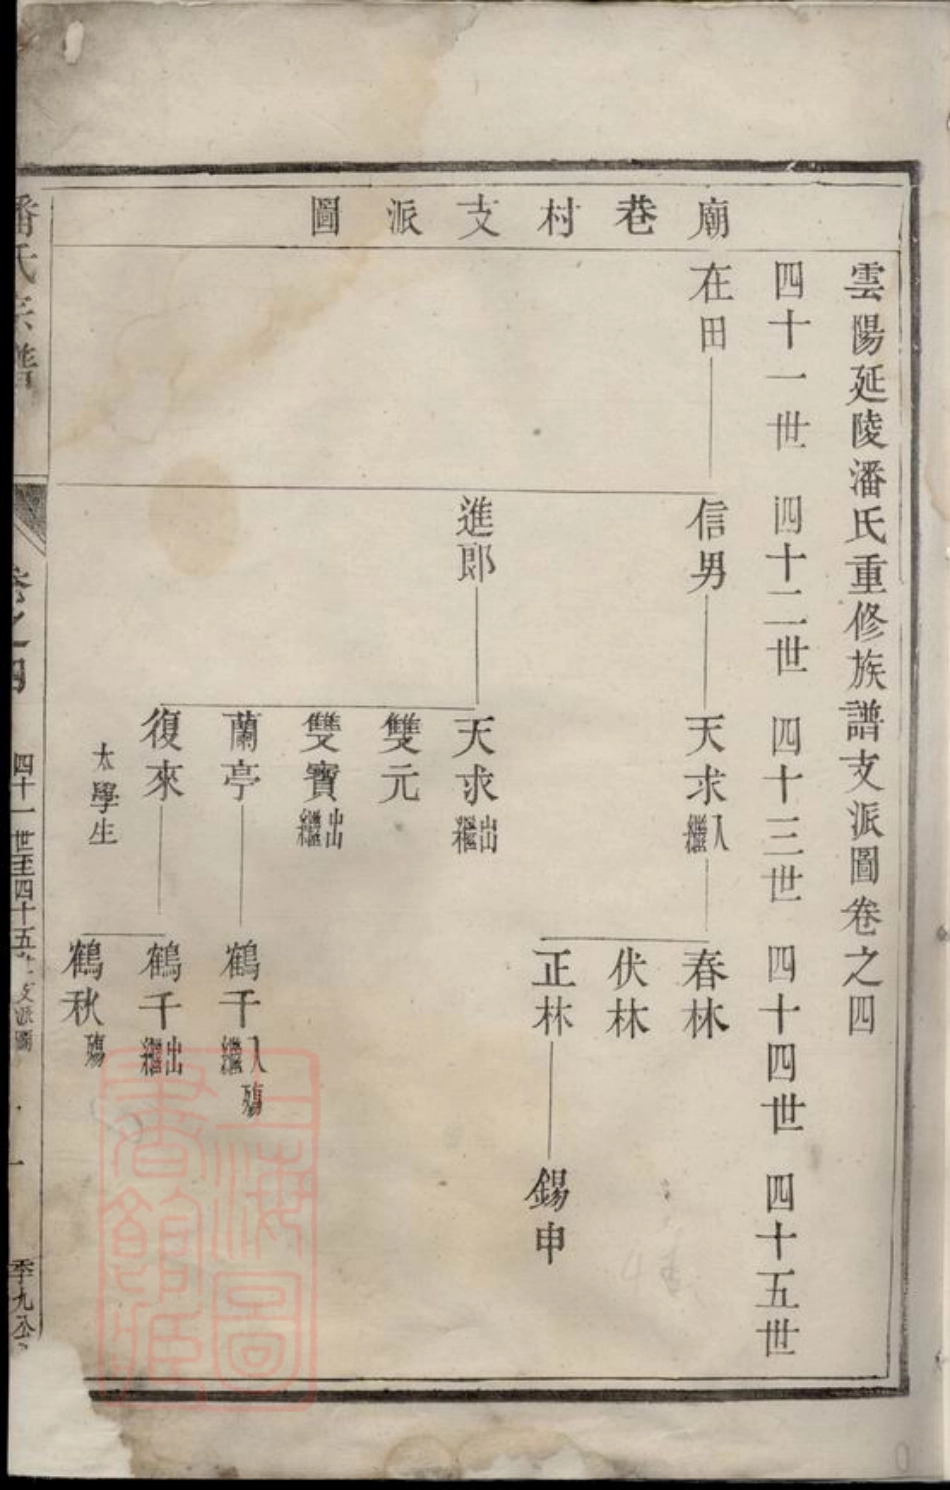 廟巷村支派圖
雲陽延陵潘氏重修族譜支派圖卷之四
四十一世 四十二世 四十三世 四十四世 四十五世
在田
信男
天求 入繼
春林
伏林
正林
錫申
進郎
天求 出繼
雙元
雙寶 出繼
蘭亭
鶴千 入繼 殤
復來
太學生
鶴千 出繼
鶴秋 殤
潘氏宗譜
卷之四
四十一世至四十五世支派圖
一
季九公
上海圖書館藏